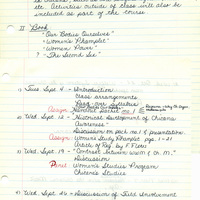 etc. Activities outside of class will also be
included as part of the course
II Books
"Our Bodies Ourselves"
"Women's Pamphlet"
"Women Power"
? "The Second Sex"
1) Tues Sept 4 - Introduction
class arrangements
Pass out syllabus
Assign: packet no. 1
Wed. Sept 12 - Historical Development of Chicana
Awareness
Discussion on pack no. 1 & presentation.
Assign: Women's Study Pamphlet pgs.
Article of Reg. by F. Flores
Wed. Sept 19 - "Contrast between women & Ch. M."
Discussion
Panel Women's Studies Program
Chicano Studies
Wed. Sept 26 - Discussion of Field Involvement